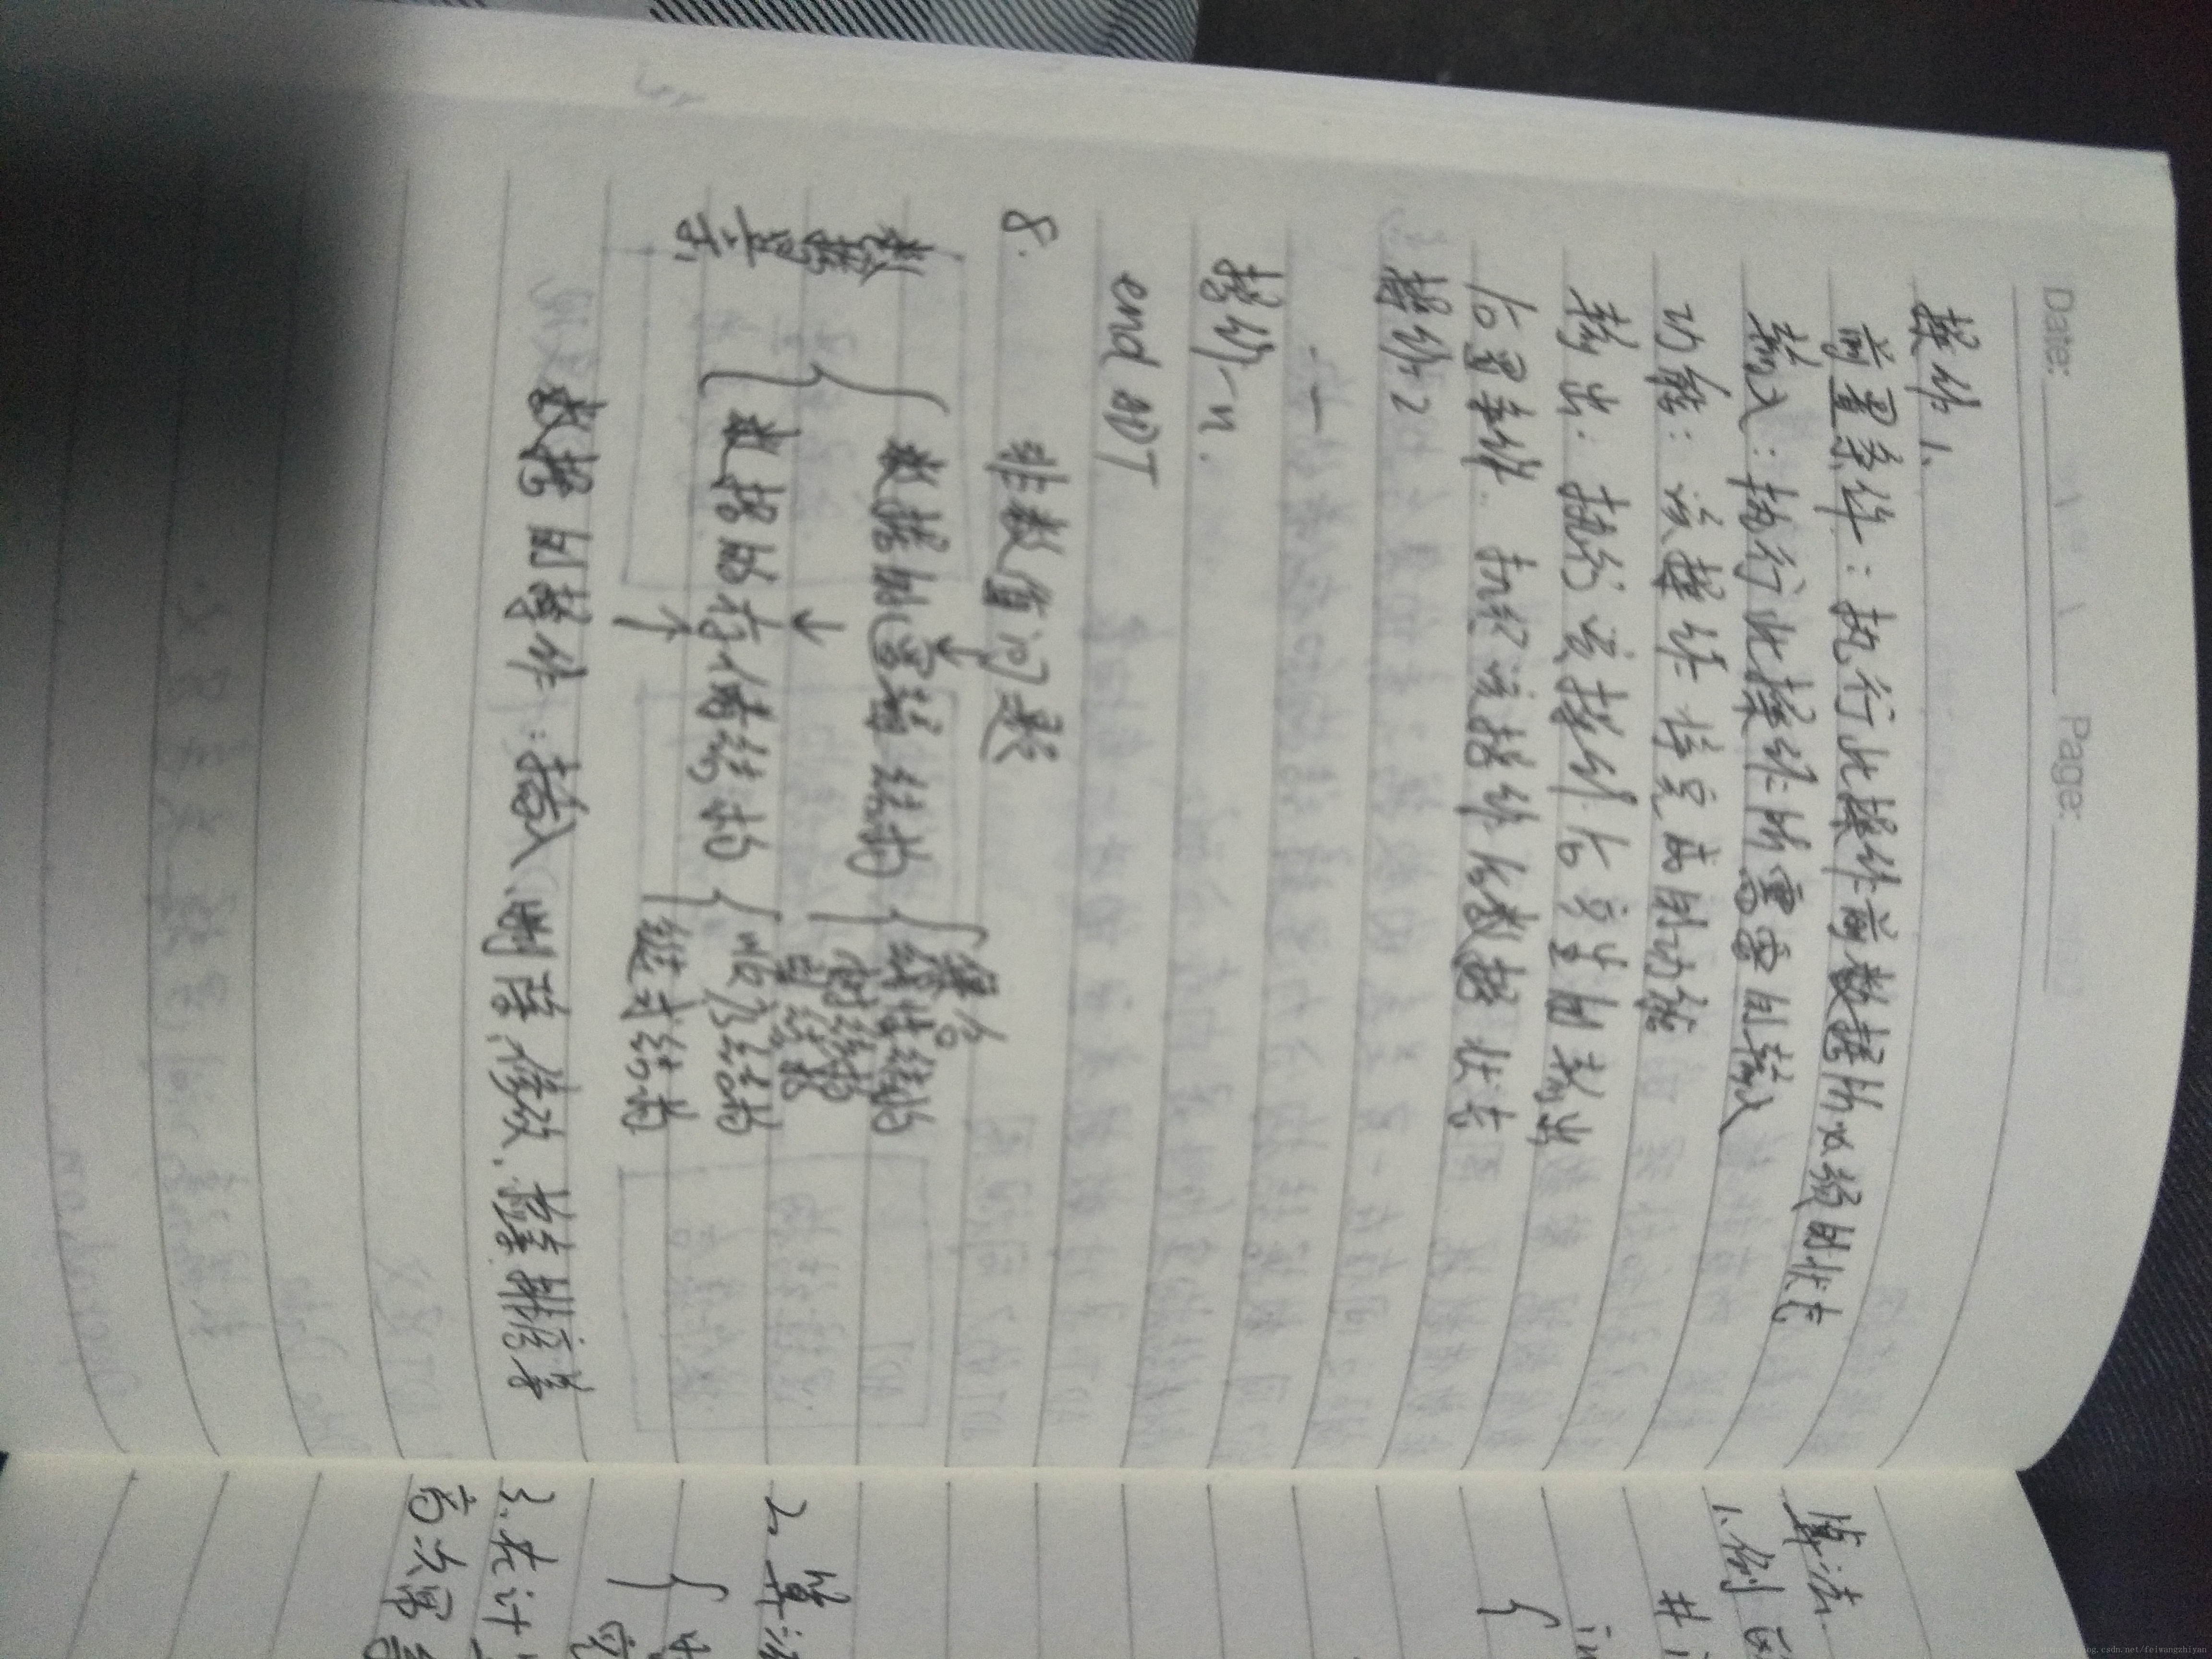 Date: Page:
操作1、
前置条件：执行此操作前数据所必须的状态
输入：执行此操作所需要的输入
功能：该操作将完成的功能
输出：执行该操作后产生的输出
后置条件：执行该操作后数据状态
操作2
操作n.
end ADT
8.
非数值问题
↓
数据表示
数据的逻辑结构
集合
线性结构
树结构
图结构
↓
数据的存储结构
顺序结构
链式结构
↑
数据的操作：插入、删除、修改、检索、排序等
算法.
1.例
2.算法
3.
高次幂
http://blog.csdn.net/feiwangzhiyan